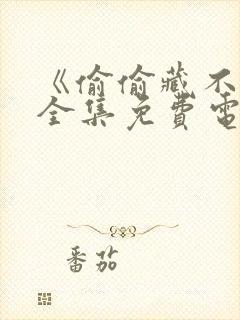 《偷偷藏不
全集免費電
番茄